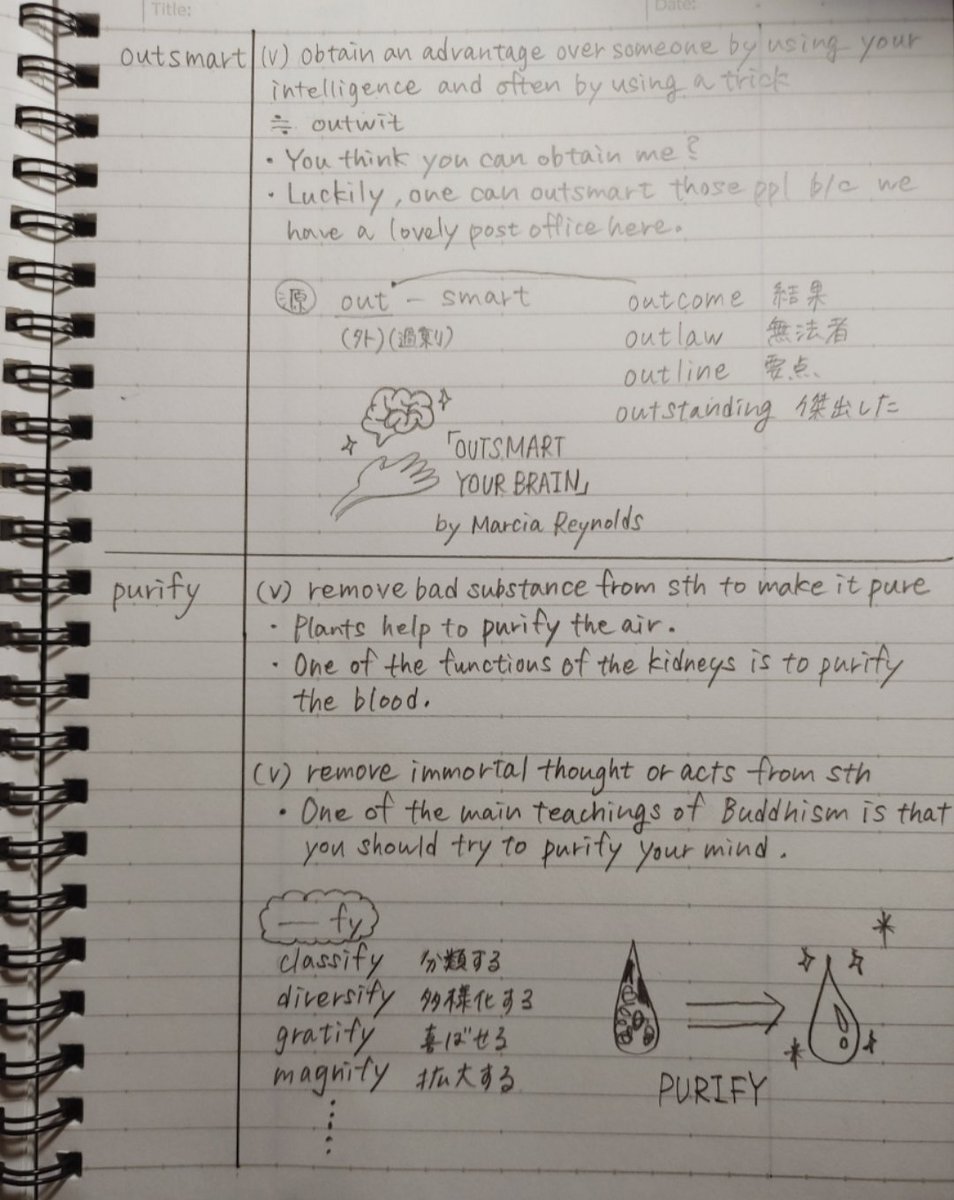 Title:
Date:
outsmart (v) obtain an advantage over someone by using your
intelligence and often by using a trick
≒ outwit
・You think you can obtain me?
・Luckily, one can outsmart those ppl b/c we
have a lovely post office here.
源 out - smart
(外)(過剰)
outcome 結果
outlaw 無法者
outline 要点
outstanding 傑出した
「OUTSMART
YOUR BRAIN」
by Marcia Reynolds
purify (v) remove bad substance from sth to make it pure
・Plants help to purify the air.
・One of the functions of the kidneys is to purify
the blood.
(v) remove immortal thought or acts from sth
・One of the main teachings of Buddhism is that
you should try to purify your mind.
— fy
classify 分類する
diversify 多様化する
gratify 喜ばせる
magnify 拡大する
PURIFY